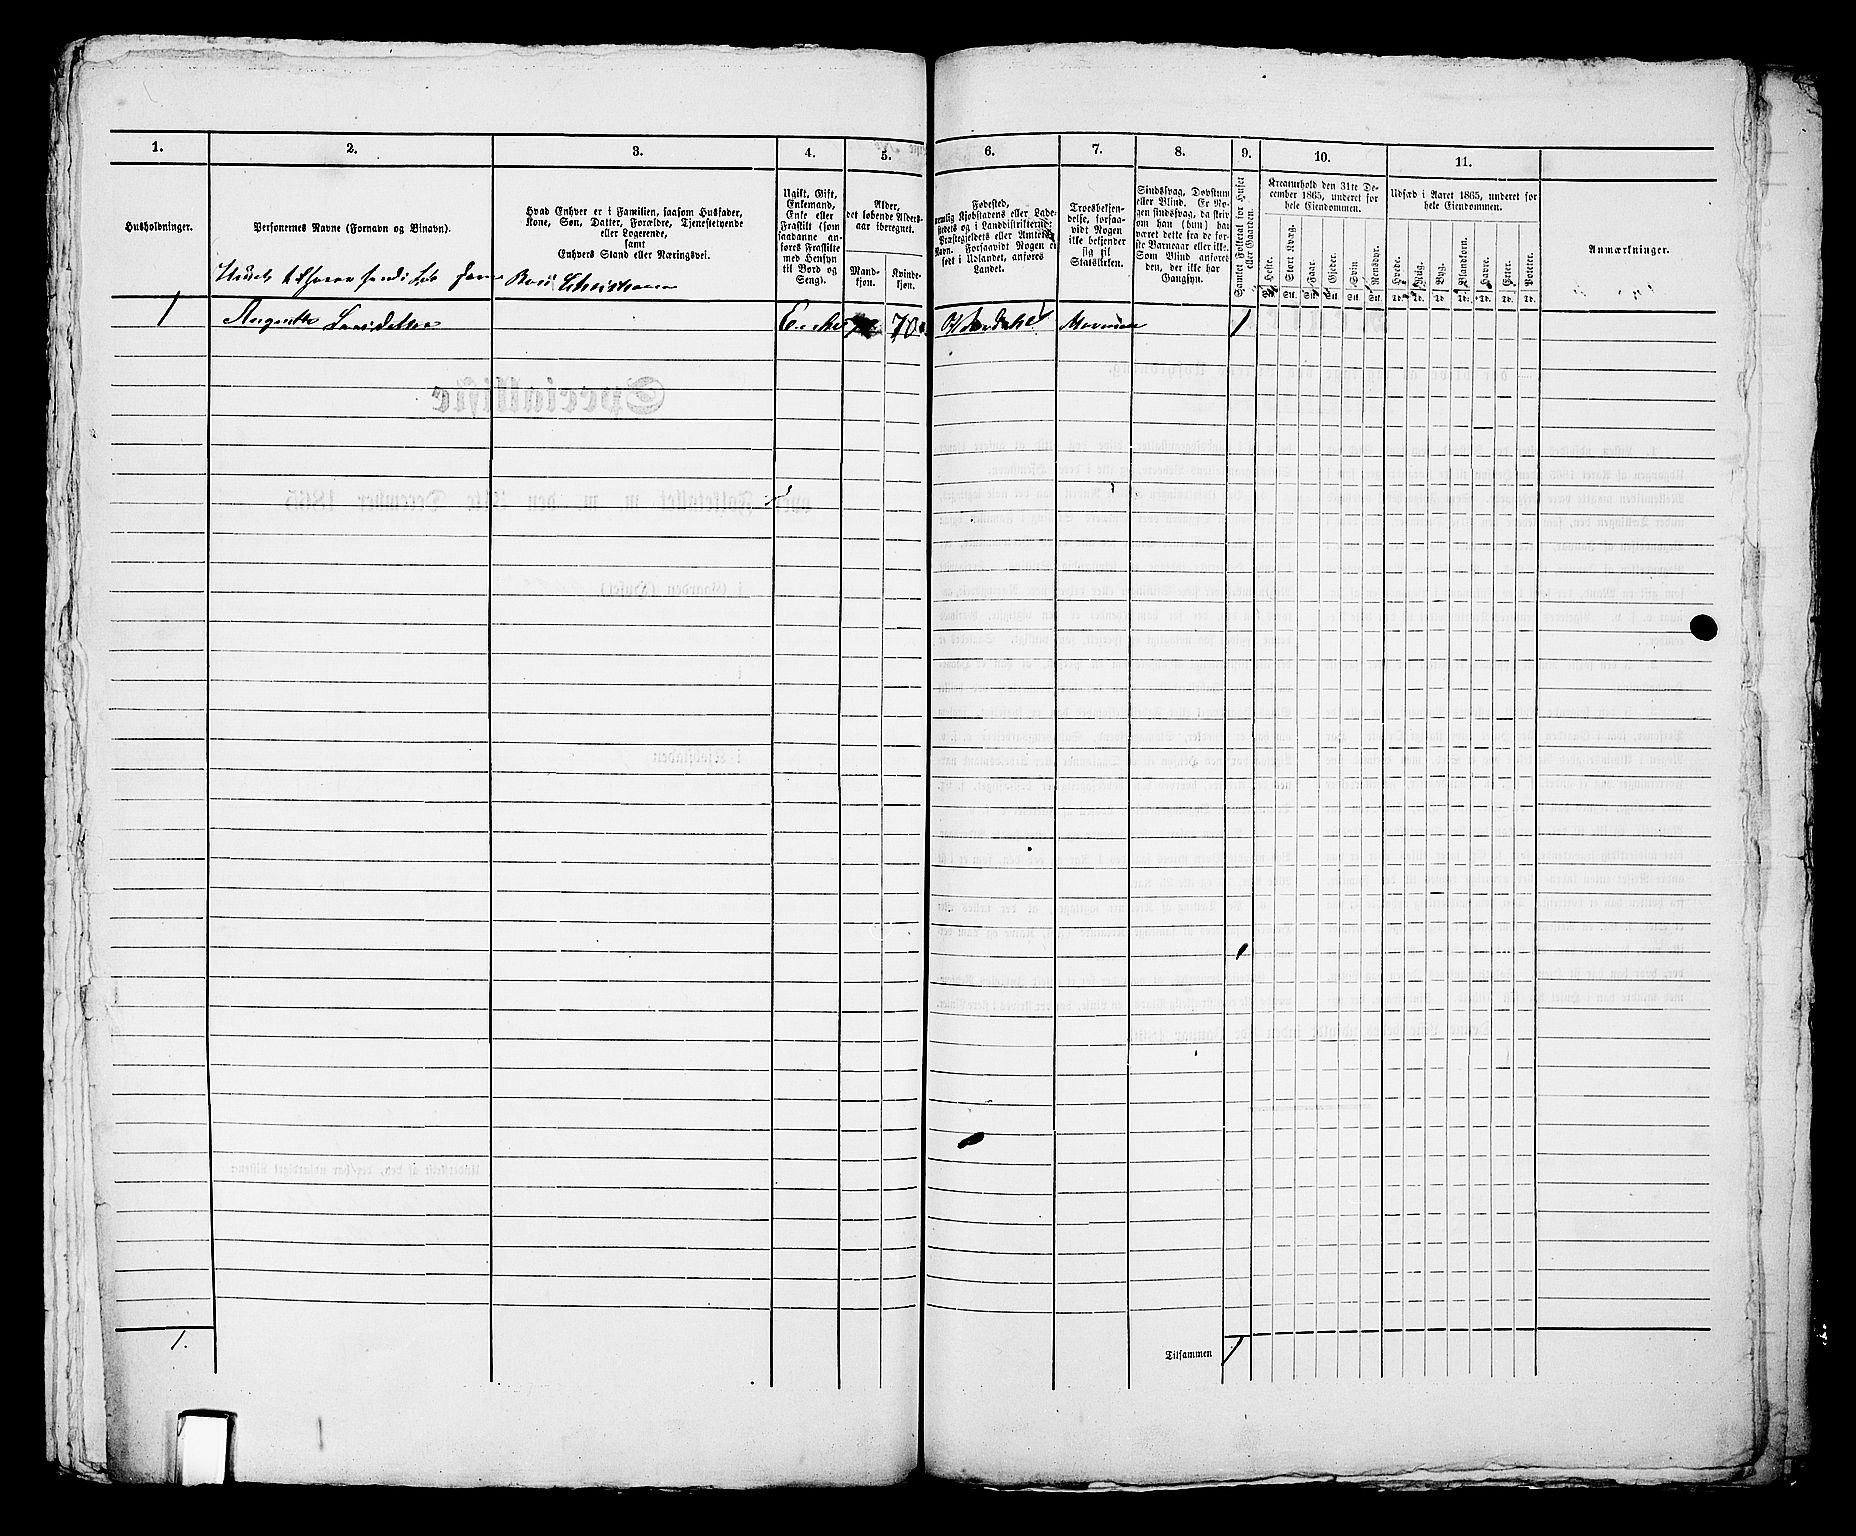 1.
2.
3.
4.
5.
6.
7.
8.
9.
10.
11.
Husholdninger.
Personernes Navne (Fornavn og Binavn).
Hvad Enhver er i Familien, saasom Husfader,
Kone, Søn, Datter, Forældre, Tjenestetyende
eller Logerende,
samt
Enhvers Stand eller Næringsvei.
Ugift, Gift,
Enkemand,
Enke eller
Fraskilt (som
saadanne an-
føres Fraskilte
med Hensyn
til Bord og
Seng).
Alder,
det løbende Alders-
aar iberegnet.
Mand-
kjøn.
Kvinde-
kjøn.
Fødested,
nemlig Kjøbstadens eller Lade-
stedets og i Landdistrikterne
Præstegjeldets eller Amtets
Navn. Forsaavidt Nogen er
født i Udlandet, anføres
Landet.
Troesbekjen-
delse, forsaa-
vidt Nogen
ikke bekjender
sig til
Statskirken.
Sindssvag, Døvstum
eller Blind. Er No-
gen sindssvag, da skriv
om han (hun) har
været dette fra de før-
ste Barneaar eller ikke.
Som Blind anføres
den, der ikke har
Gangsyn.
Samlet Folketal for Huset
eller Gaarden.
Kreaturhold den 31te De-
cember 1865, underet for
hele Eiendommen.
Heste.
Stort Kvæg.
Faar.
Gjeder.
Svin.
Rensdyr.
Stk. Stk. Stk. Stk. Stk. Stk.
Udsæd i Aaret 1865, underet for
hele Eiendommen.
Hvede.
Rug.
Byg.
Blandkorn.
Havre.
Erter.
Poteter.
Td. Td. Td. Td. Td. Td. Td.
Anmærkninger.
Christensen
1
Enke
70
1
1.
Tilsammen
1